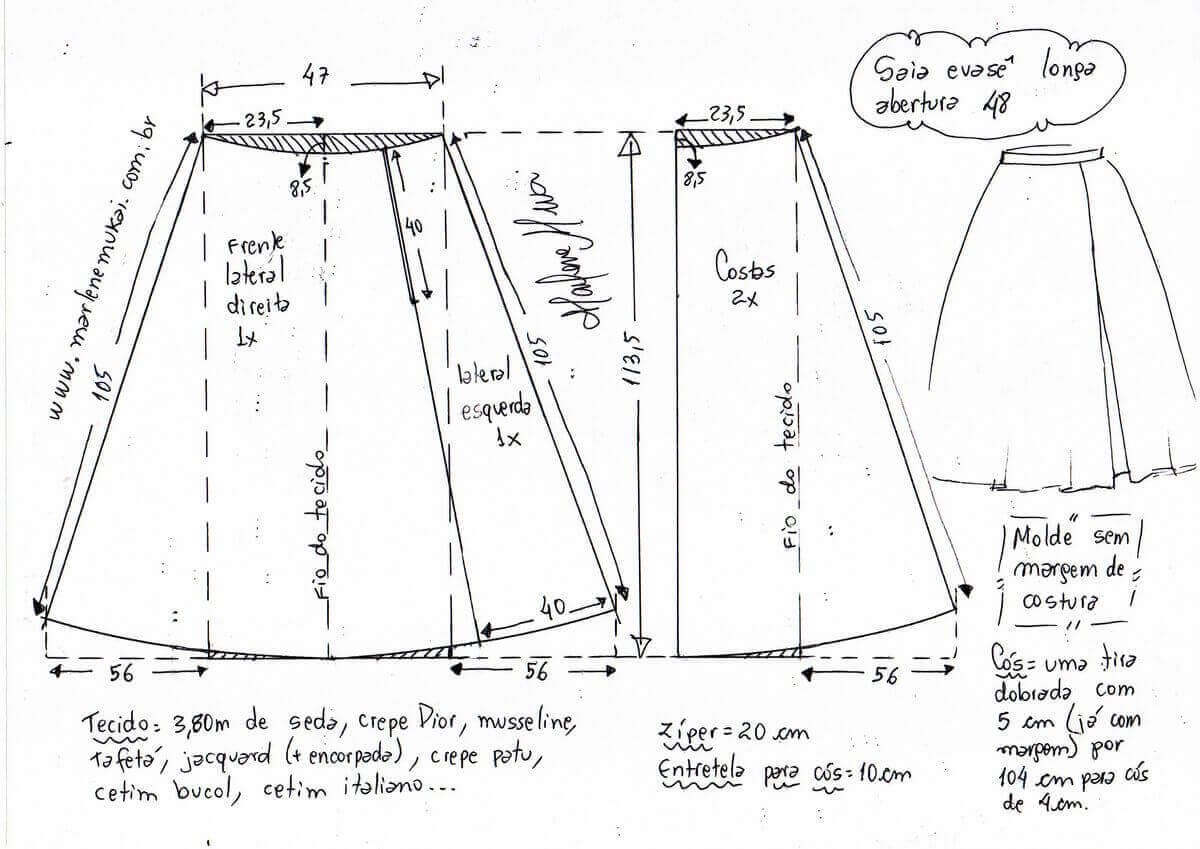 Saia evasê longa
abertura 48
www.marlenemukai.com.br
47
23,5
8,5
40
Frente
lateral
direita
1x
Fio do tecido
lateral
esquerda
1x
105
105
40
56
56
113,5
23,5
8,5
Costas
2x
Fio do tecido
105
56
Molde sem
margem de
costura
Cós = uma tira
dobrada com
5 cm (já com
margem) por
104 cm para cós
de 4 cm.
Tecido = 3,80m de seda, crepe Dior, musseline,
tafetá, jacquard (+ encorpada), crepe patu,
cetim bucol, cetim italiano...
Zíper = 20 cm
Entretela para cós = 10 cm